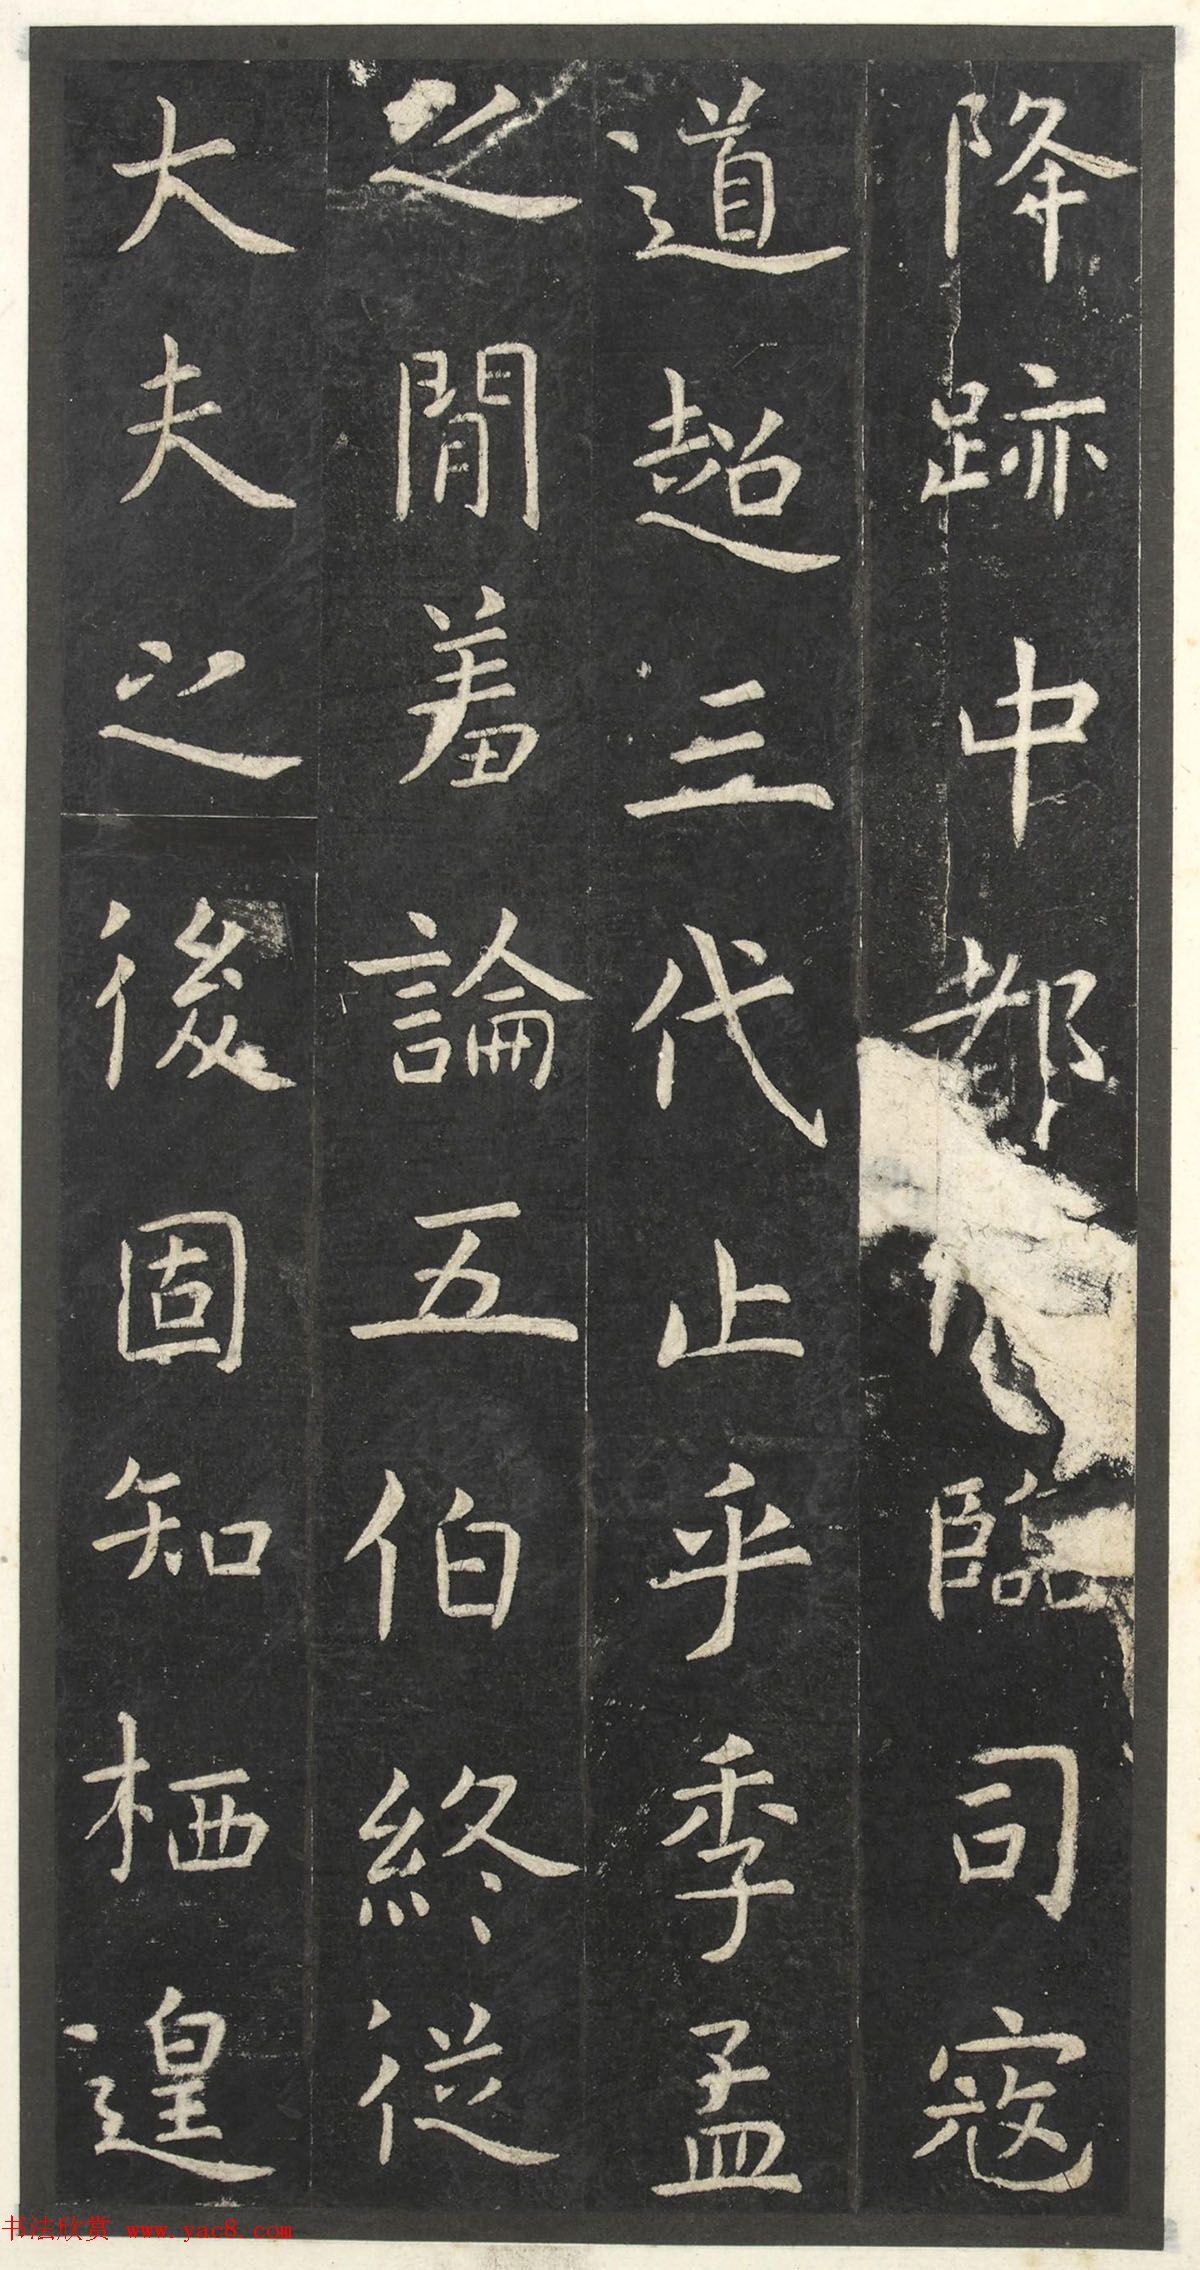 降跡中都臨司寇
道超三代止乎季孟
之間羞論五伯終從
大夫之後固知栖遑
书法欣赏 www.yac8.com